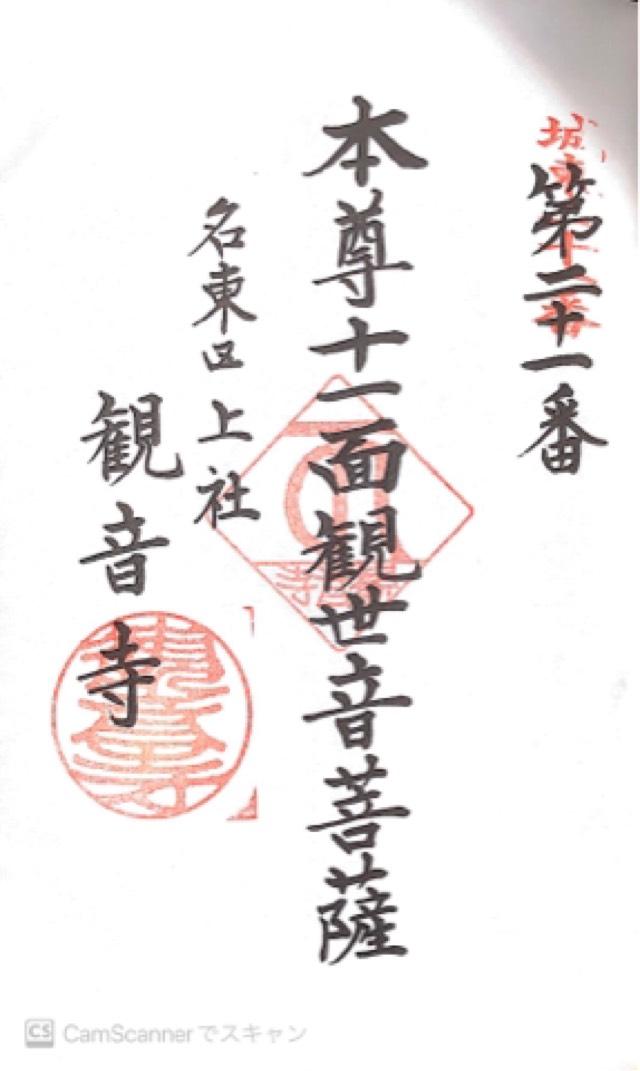 第二十一番
本尊十一面観世音菩薩
名東区上社
観音寺
CamScannerでスキャン